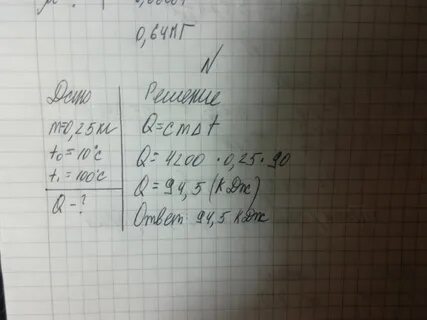 0,64кг
N
Дано
m=0,25кг
t₀=10°c
t₁=100°c
Q-?
Решение
Q=cmΔt
Q=4200·0,25·90
Q=94,5(кДж)
Ответ 94,5кДж